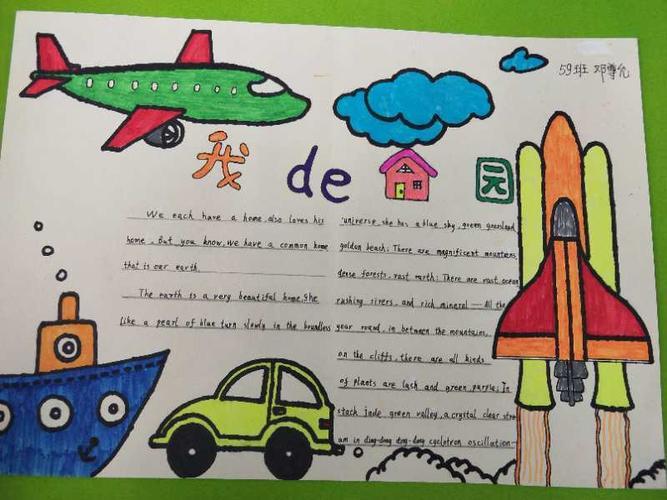 59班 邓尊允
我 de 家 园
We each have a home, also loves his
home. But you know, we have a common home
that is our earth.
The earth is a very beautiful home. She
like a pearl of blue turn slowly in the boundless
universe, she has a blue sky, green grassland,
golden beach; There are magnificent mountains,
dense forests, vast earth; There are vast ocean
rushing rivers, and rich mineral — All the
year round, in between the mountains,
on the cliffs, there are all kinds
of plants are lush and green, purple; In
stack lnde green valley, a crystal clear stre
am in ding-dong ding-dong cyclotron oscillation—